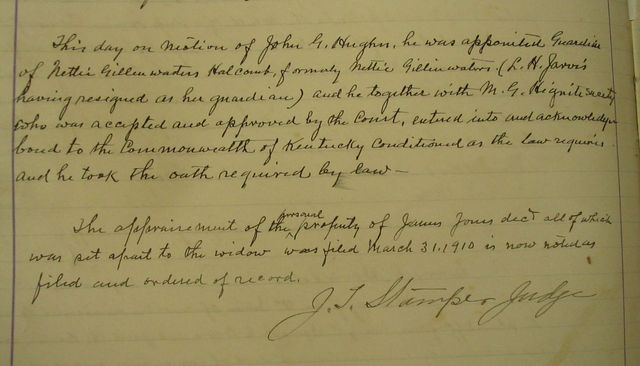 This day on motion of John G. Hughes, he was appointed Guardian
of Nettie Gillinwaters Halcomb, formerly Nettie Gillinwaters (L. H. Jarvis
having resigned as her guardian) and he together with M. G. Hignite surety
who was accepted and approved by the Court, entered into and acknowledge
bond to the Commonwealth of Kentucky Conditioned as the law requires
and he took the oath required by law —
The appraisement of the personal property of James Jones dec'd all of which
was set apart to the widow was filed March 31, 1910 is now noted as
filed and ordered of record.
J. T. Stamper Judge